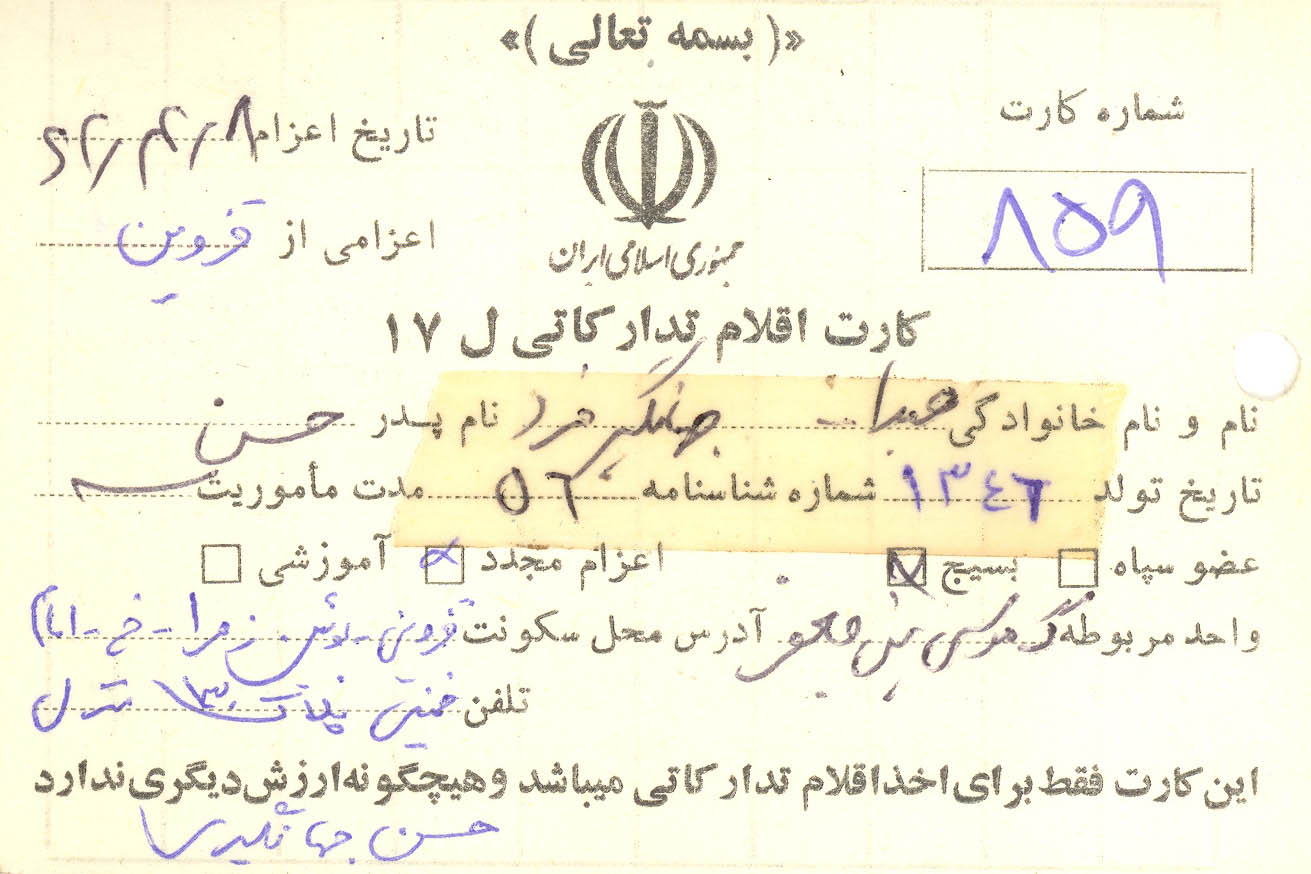 «( بسمه تعالی )»
شماره کارت
۸۵۹
جمهوری اسلامی ایران
تاریخ اعزام
اعزامی از قزوین
کارت اقلام تدارکاتی ل ۱۷
نام و نام خانوادگی جهانگیر فرد نام پدر حسن
تاریخ تولد ۱۳۴۶ شماره شناسنامه ۵۶ مدت مأموریت
عضو سپاه بسیج اعزام مجدد آموزشی
واحد مربوطه آدرس محل سکونت قزوین - زهرا - خ - امام
تلفن خمینی پلاک ۱۳۰ منزل
این کارت فقط برای اخذ اقلام تدارکاتی میباشد و هیچگونه ارزش دیگری ندارد
حسن